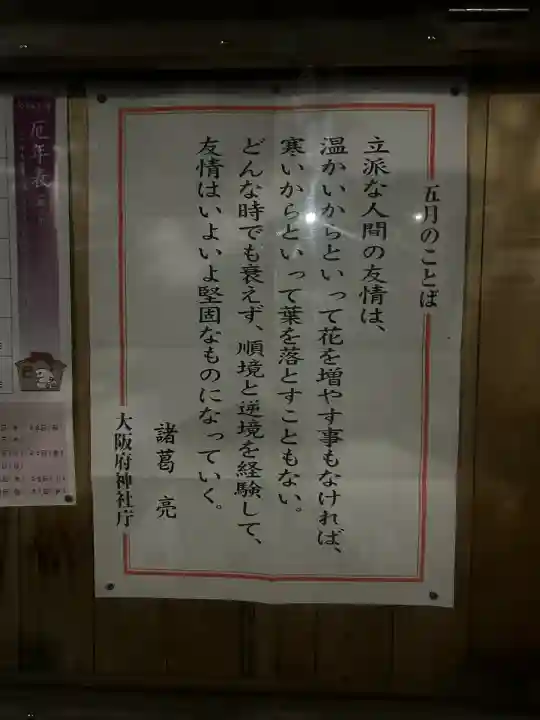 五月のことば
立派な人間の友情は、
温かいからといって花を増やす事もなければ、
寒いからといって葉を落とすこともない。
どんな時でも衰えず、順境と逆境を経験して、
友情はいよいよ堅固なものになっていく。
諸葛亮
大阪府神社庁
厄年表